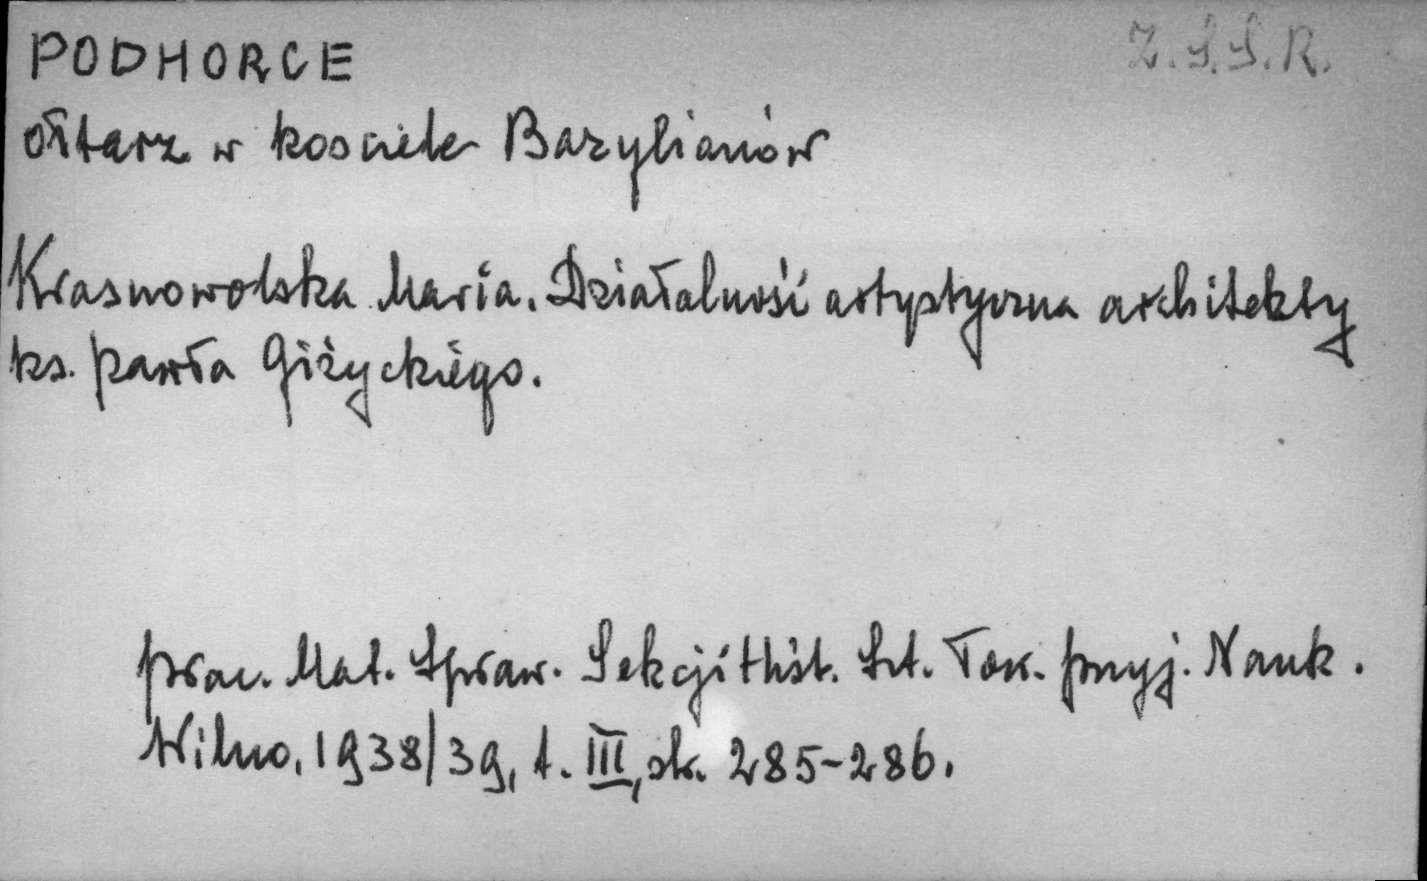 PODHORCE
Z.S.S.R.
ołtarz w kosciele Bazylianów
Krasnowolska Maria. Działalność artystyczna architekty
ks. Pawła Giżyckiego.
Prac. Mat. Spraw. Sekcji Hist. Szt. Tow. Przyj. Nauk.
Wilno, 1938/39, t. III, str. 285-286.